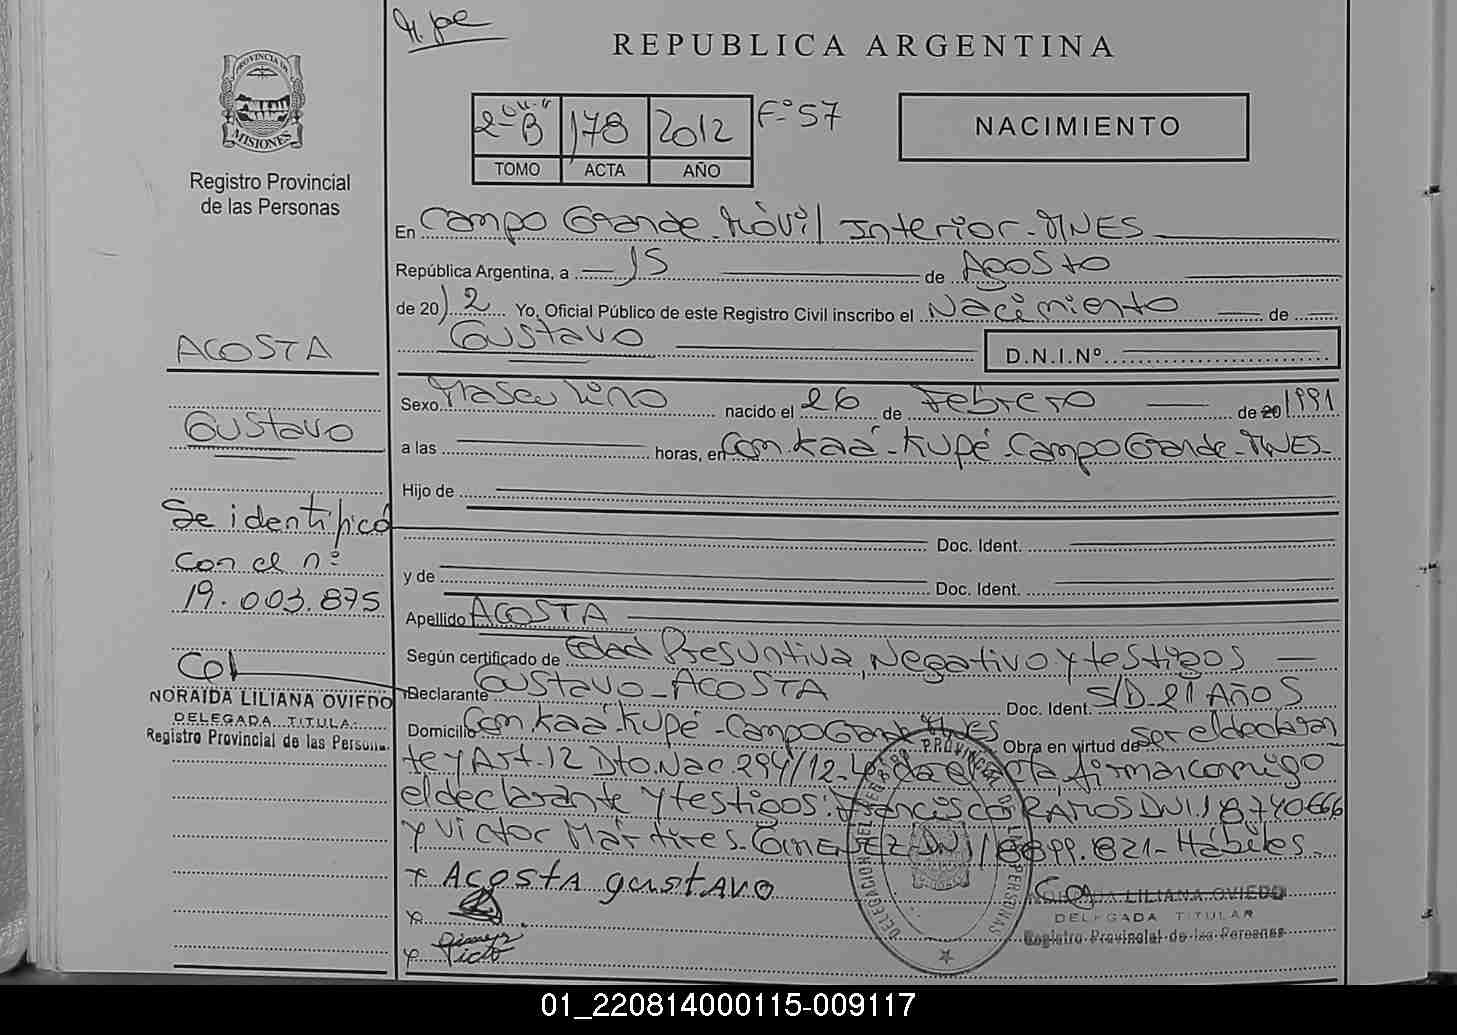 REPUBLICA ARGENTINA
PROVINCIA DE
MISIONES
Registro Provincial
de las Personas
2º "B" 178 2012 Fº 57
TOMO ACTA AÑO
NACIMIENTO
En Campo Grande - Móvil Interior - MNES
República Argentina, a 15 de Agosto
de 2012 Yo, Oficial Público de este Registro Civil inscribo el Nacimiento de
Gustavo
D.N.I.Nº
ACOSTA
Gustavo
Se identificó
con el nº
19.003.875
NORAIDA LILIANA OVIEDO
DELEGADA TITULAR
Registro Provincial de las Personas
Sexo Masculino nacido el 26 de Febrero de 20 1991
a las horas, en Com. Kaá - Kupé - Campo Grande - MNES -
Hijo de
Doc. Ident.
y de Doc. Ident.
Apellido ACOSTA
Según certificado de Edad Presuntiva, Negativo y testigos
Declarante Gustavo - ACOSTA Doc. Ident. S/D - 21 Años
Domicilio Com. Kaá Kupé - Campo Grande MNES Obra en virtud de ser el declaran
te y Art. 12 Dto. Nac. 294/12 - Leída el acta firma conmigo
el declarante y testigos: Francisco RAMOS DNI 18740666
y Victor Mártires - GIMENEZ - DNI 18899.821 - Hábiles.
x Acosta gustavo
x
x Gimenez
Victo
NORAIDA LILIANA OVIEDO
DELEGADA TITULAR
Registro Provincial de las Personas
DELEGACION DEL REGISTRO PROVINCIAL DE LAS PERSONAS
01_220814000115-009117